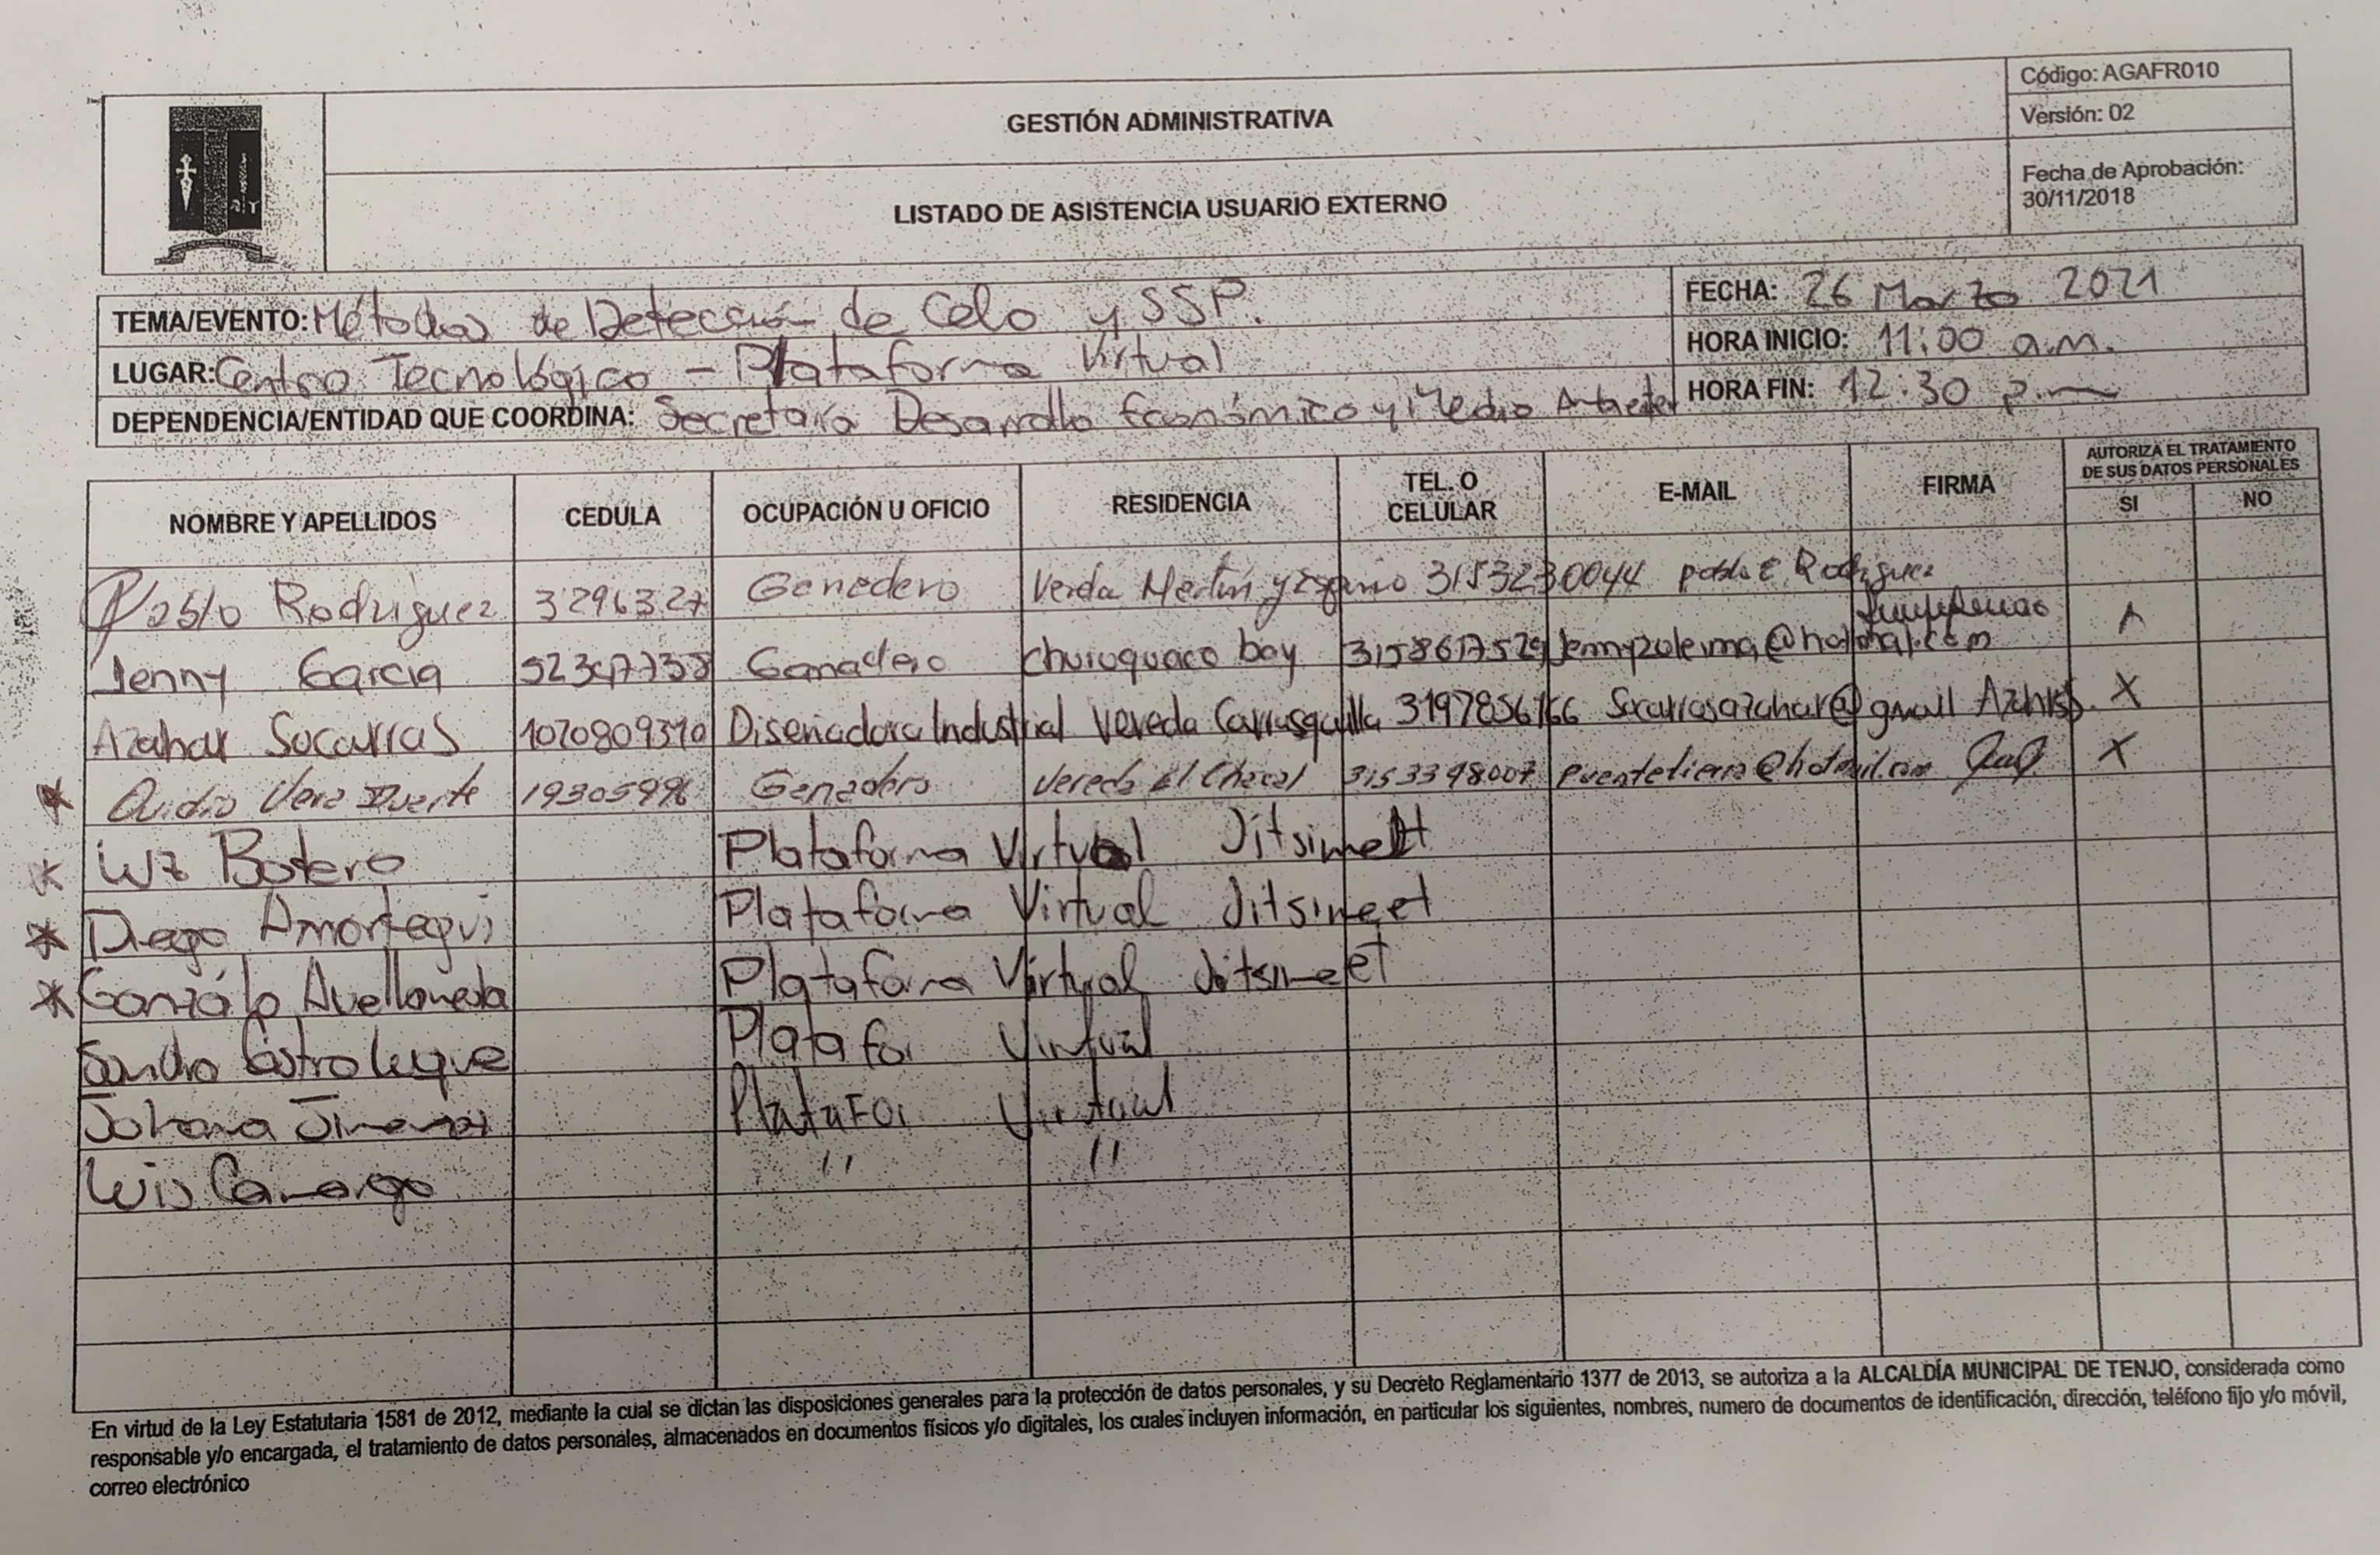 Código: AGAFR010
GESTIÓN ADMINISTRATIVA
Versión: 02
Fecha de Aprobación:
30/11/2018
LISTADO DE ASISTENCIA USUARIO EXTERNO
TEMA/EVENTO: Métodos de Detección de Celo y SSP.
FECHA: 26 Marzo 2021
LUGAR: Centro Tecnológico - Plataforma Virtual
HORA INICIO: 11:00 a.m.
DEPENDENCIA/ENTIDAD QUE COORDINA: Secretaría Desarrollo Económico y Medio
HORA FIN: 12:30 p.m
NOMBRE Y APELLIDOS CEDULA OCUPACIÓN U OFICIO RESIDENCIA TEL. O CELULAR E-MAIL FIRMA AUTORIZA EL TRATAMIENTO DE SUS DATOS PERSONALES
SI NO
Pablo Rodriguez 3296327 Ganadero 3153230044 pablo E Rodriguez
Jenny Garcia Ganadero 3158617529
Azahar Socarras 1070809370 Diseñadora Industrial Vereda Carrasquilla 3197856166 Socarrasazahar@gmail X
Ovidio Vera Duarte 19305996 Ganadero Vereda El Chacal 3153398007 puentetierra@hotmail.com X
Botero Plataforma Virtual Jitsimeet
Diego Amortegui Plataforma Virtual Jitsimeet
Gonzalo Avellaneda Plataforma Virtual Jitsimeet
Sandra Castro Luque Platafor Virtual
Johana Jimenez PlataFor Virtual
Luis Camargo " "
En virtud de la Ley Estatutaria 1581 de 2012, mediante la cual se dictan las disposiciones generales para la protección de datos personales, y su Decreto Reglamentario 1377 de 2013, se autoriza a la ALCALDÍA MUNICIPAL DE TENJO, considerada como
responsable y/o encargada, el tratamiento de datos personales, almacenados en documentos físicos y/o digitales, los cuales incluyen información, en particular los siguientes, nombres, numero de documentos de identificación, dirección, teléfono fijo y/o móvil,
correo electrónico